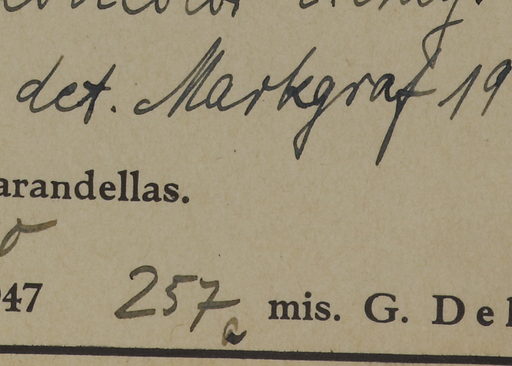 det. Markgraf 19
arandellas.
947 257a mis. G. Del